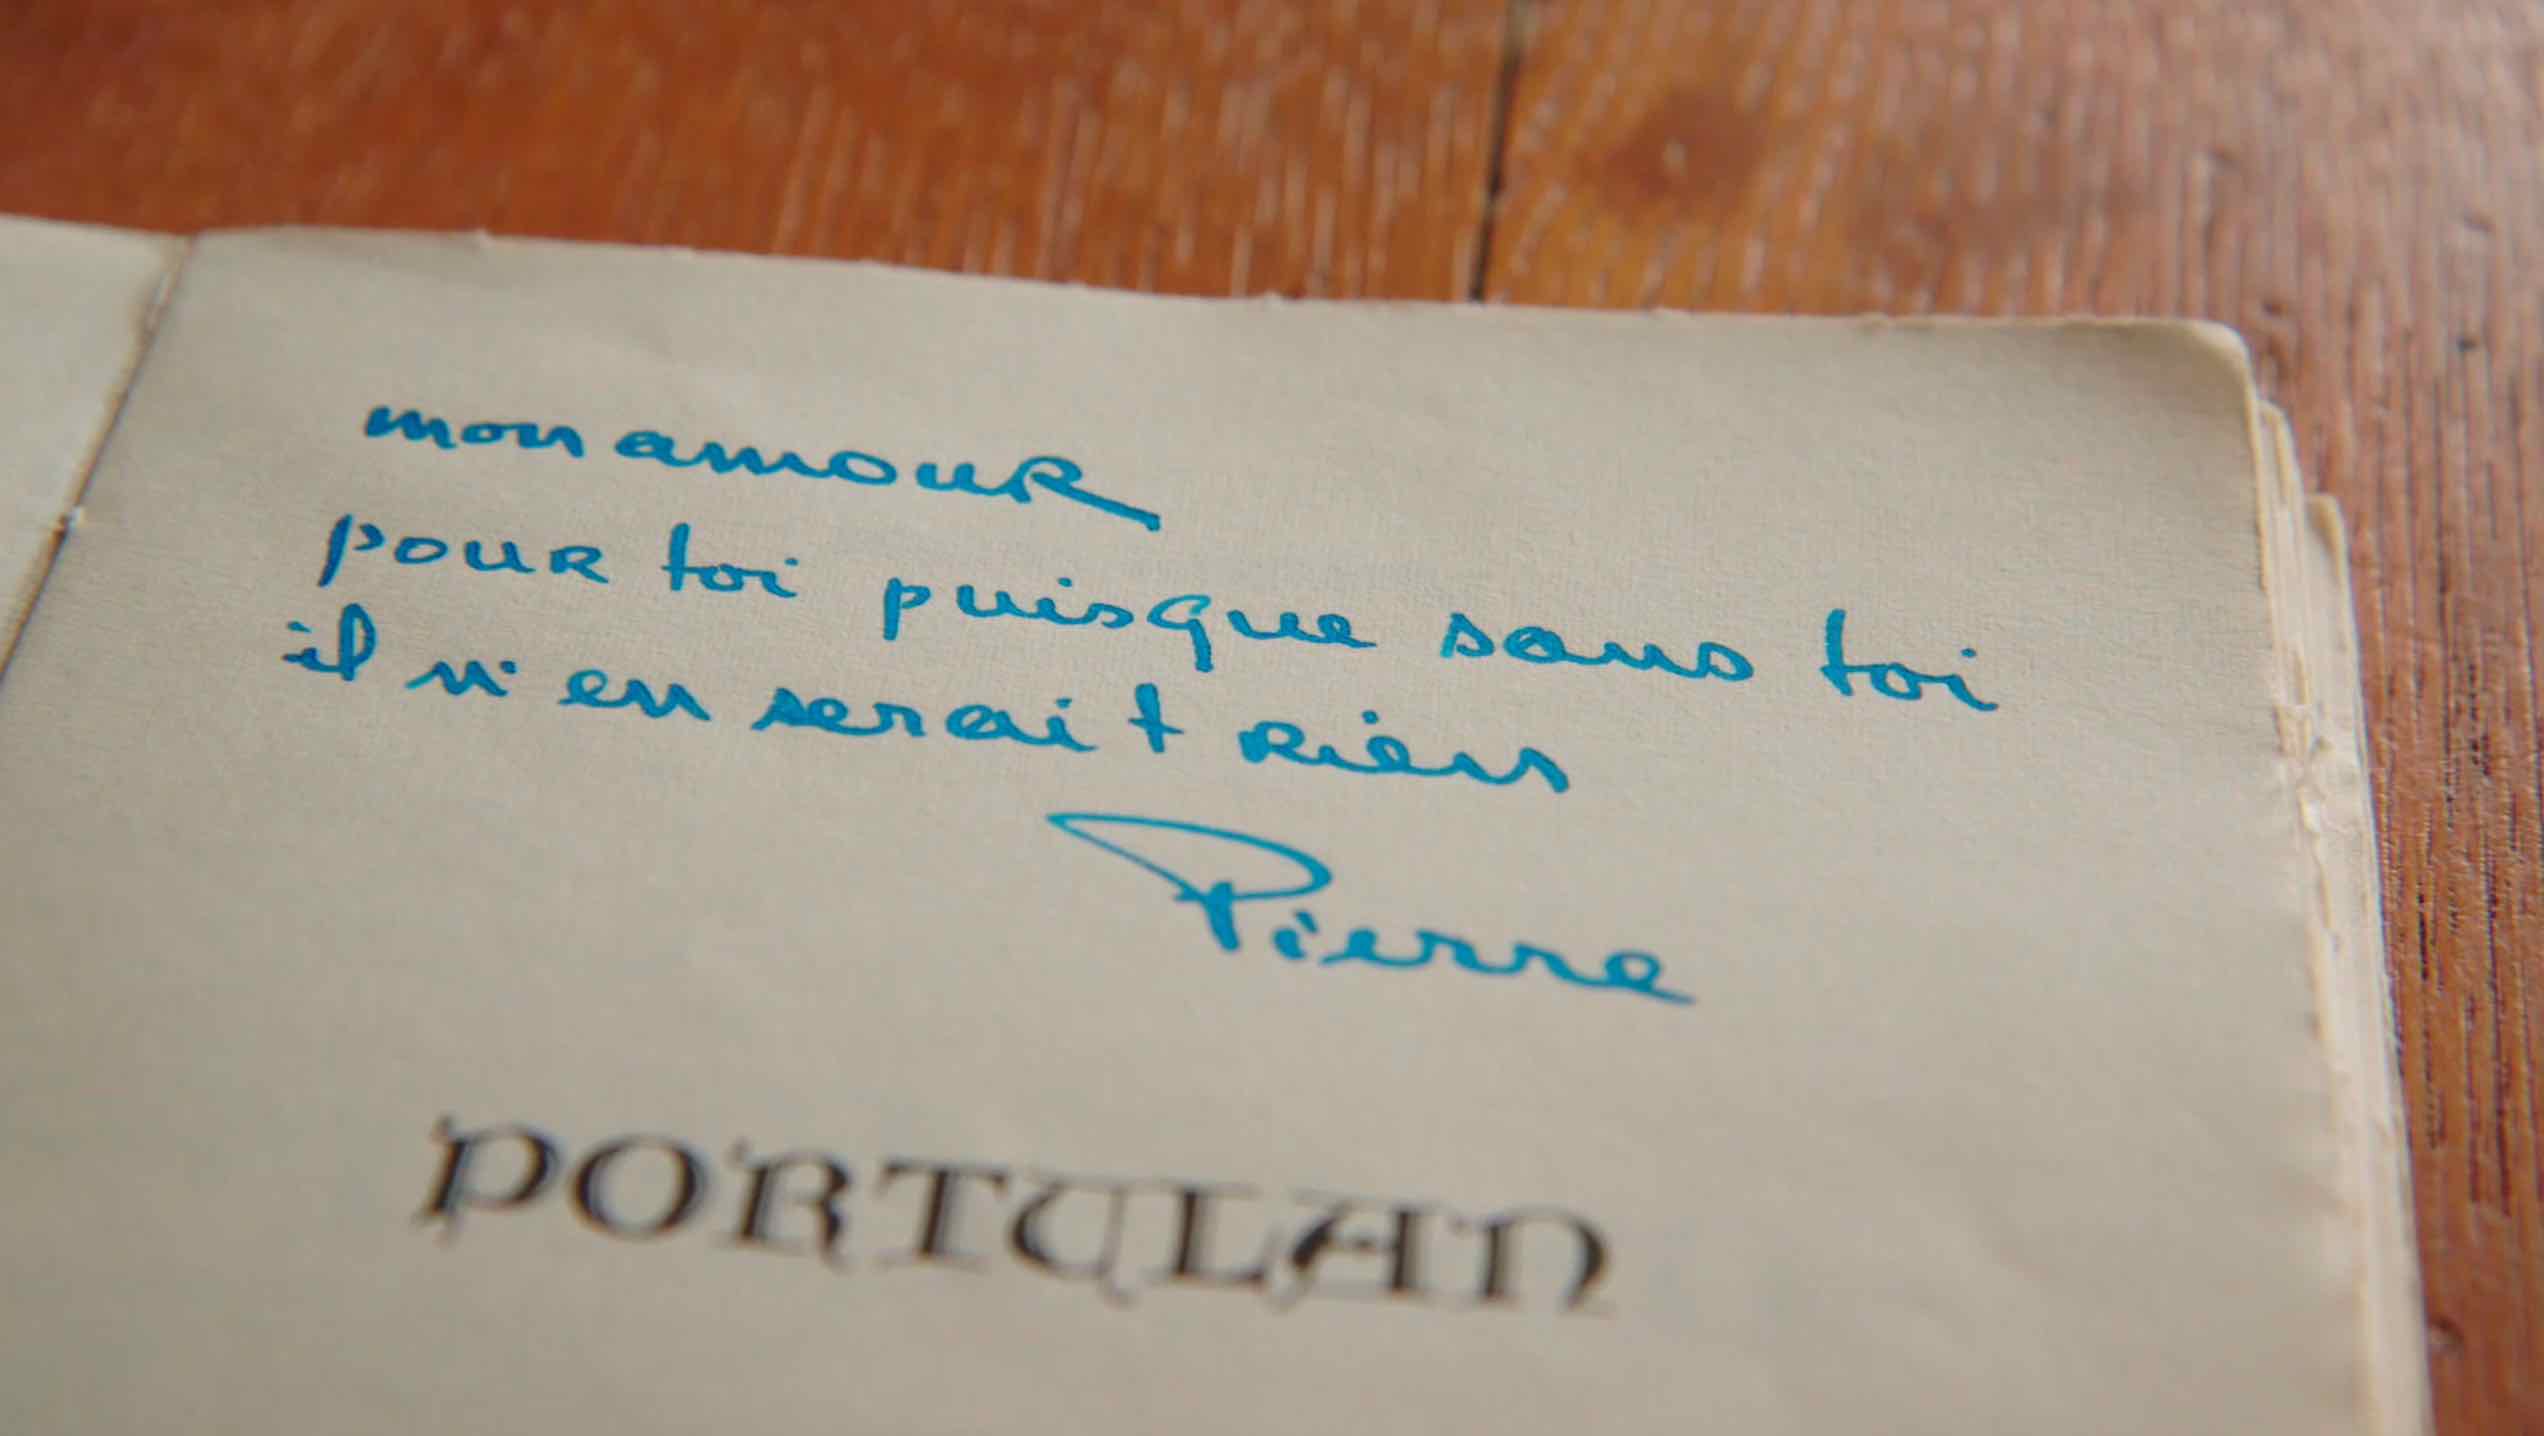 mon amour
pour toi puisque sans toi
il n'en serait rien
Pierre
PORTULAN